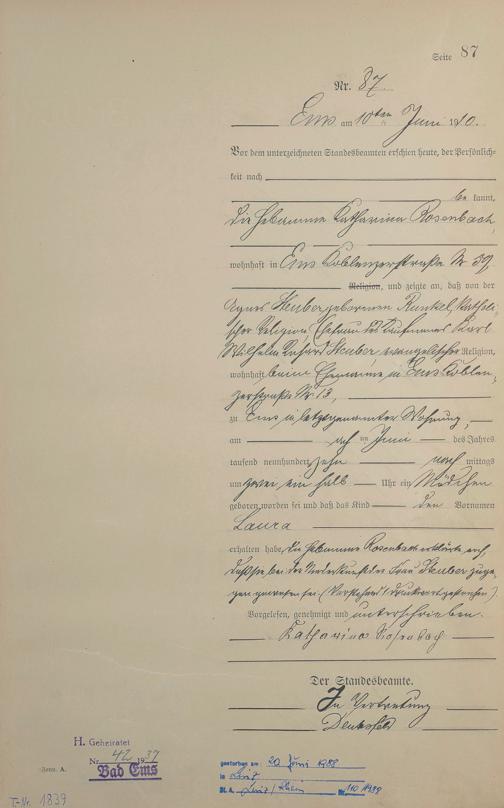 Seite 87
Nr. 87
Ems am 10ten Juni 1910.
Vor dem unterzeichneten Standesbeamten erschien heute, der Persönlich-
keit nach
bekannt,
die Hebamme Katharina Rosenbach,
wohnhaft in Ems Koblenzerstraße Nr 59
Religion, und zeigte an, daß von der
Agnes Heuber geborenen Runkel, katholi-
scher Religion, Ehefrau des Kaufmanns Karl
Wilhelm Heuber, evangelischer Religion,
wohnhaft beim Ehemanne in Ems Koblen-
zerstraße Nr 13,
zu Ems in letztgenannter Wohnung,
am Juni des Jahres
tausend neunhundert zehn nachmittags
um zwei ein halb Uhr ein Mädchen
geboren worden sei und daß das Kind den Vornamen
Laura
erhalten habe, die Hebamme Rosenbach erklärte auch,
daß sie bei der Niederkunft der Frau Heuber zuge-
gen gewesen sei. (Vorstehend 1 Druckwort gestrichen)
Vorgelesen, genehmigt und unterschrieben.
Katharina Rosenbach
Der Standesbeamte.
In Vertretung
H. Geheiratet
Nr. 42 1937
Bad Ems
Form. A.
T-Nr. 1839
gestorben am: 20 Juni 1988
in Linz
St. A. Linz / Rhein Nr. 110 1988